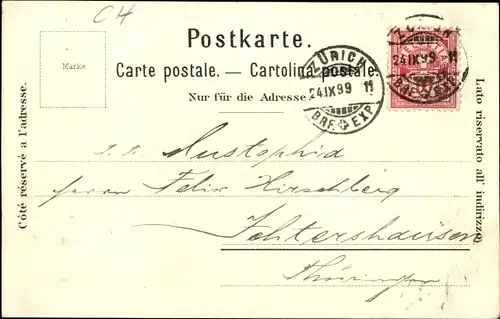 CH
Postkarte.
Marke
Carte postale. — Cartolina postale.
Nur für die Adresse.
ZÜRICH
24.IX.99 11
BRF. EXP.
HELVETIA
10
Côté réservé à l'adresse.
Lato riservato all' indirizzo
Herrn Felix Hirschberg
Ichtershausen
Thüringen